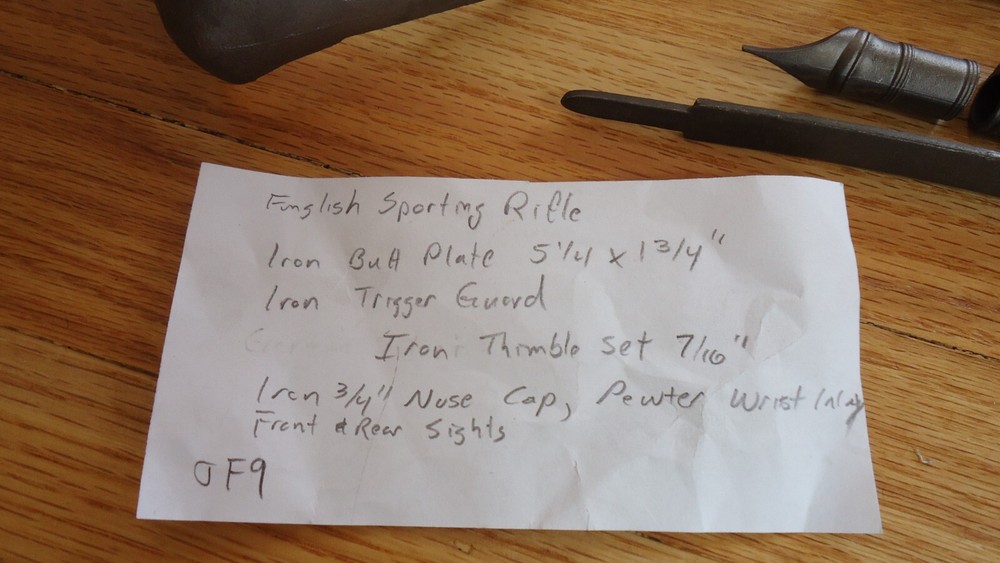 English Sporting Rifle
Iron Butt Plate 5 1/4 x 1 3/4"
Iron Trigger Guard
Iron Thimble Set 7/16"
Iron 3/4" Nose Cap, Pewter Wrist Inlay
Front & Rear Sights
JF9